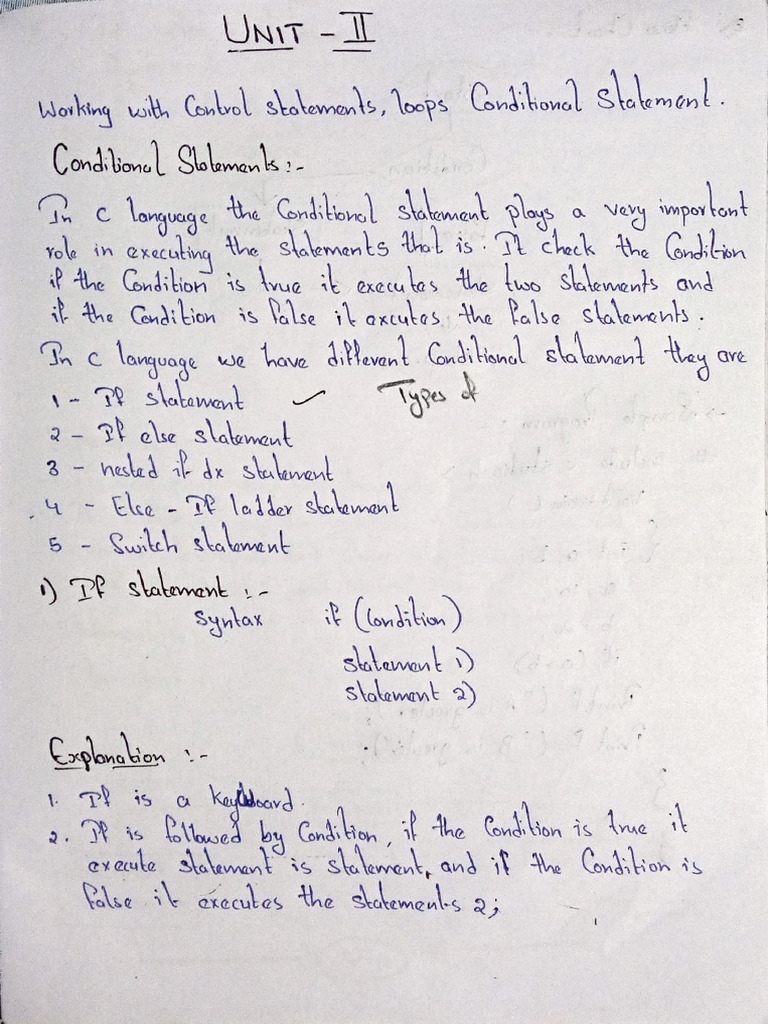 UNIT - II
Working with Control statements, loops Conditional Statement.
Conditional Statements :-
In C language the Conditional statement plays a very important
role in executing the statements that is. It check the Condition
if the Condition is true it executes the two statements and
if the Condition is false it excutes the false statements.
In C language we have different Conditional statement they are
1 - If statement ✓ Types of
2 - If else statement
3 - nested if dx statement
4 - Else - If ladder statement
5 - Switch statement
1) If statement :-
Syntax if (Condition)
statement 1)
statement 2)
Explanation :-
1. If is a Keyboard.
2. If is followed by Condition, if the Condition is true it
execute statement is statement, and if the Condition is
false it executes the statements 2;